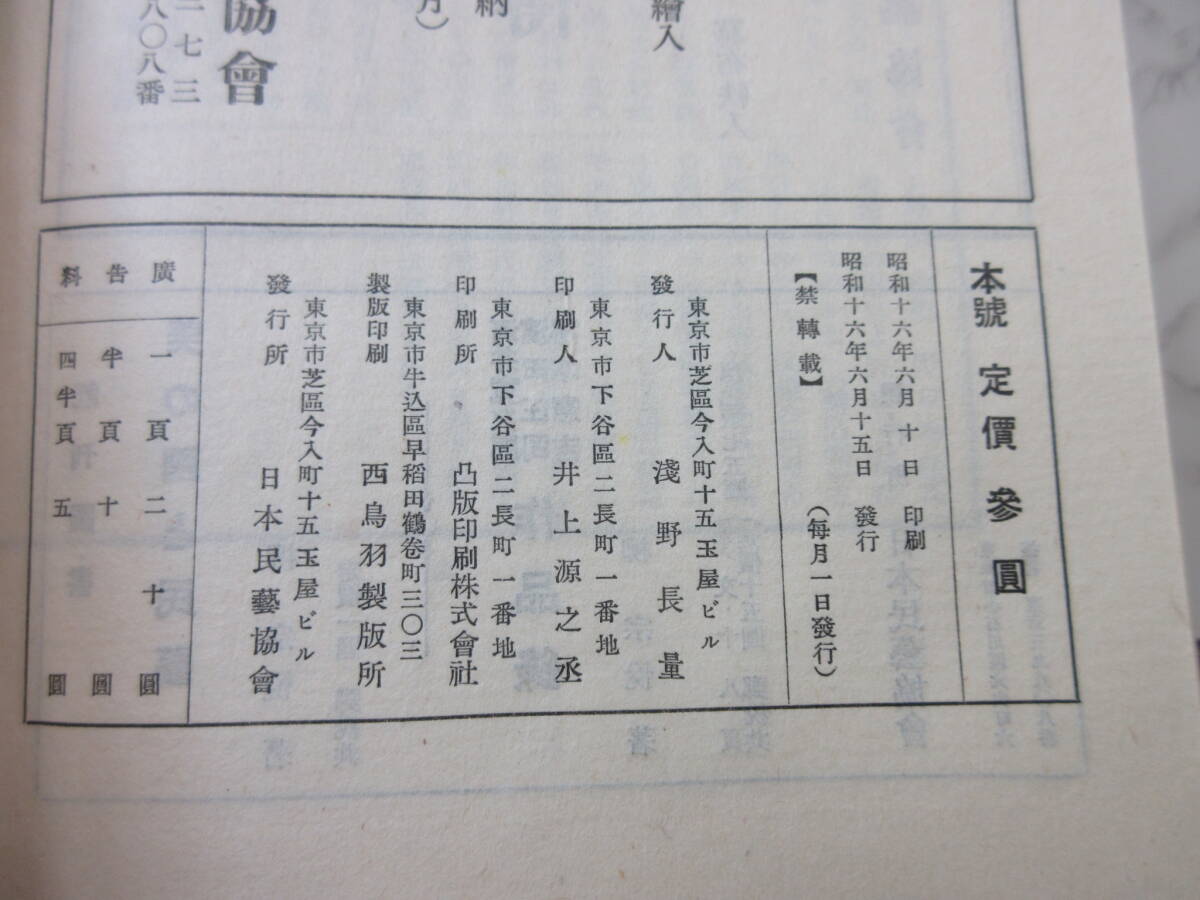 繪入
納
月）
協會
二七三
八〇八番
本號 定價參圓
昭和十六年六月 十 日 印刷
昭和十六年六月十五日 發行
【禁轉載】 （每月一日發行）
東京市芝區今入町十五玉屋ビル
發行人 淺野長量
東京市下谷區二長町一番地
印刷人 井上源之丞
東京市下谷區二長町一番地
印刷所 凸版印刷株式會社
東京市牛込區早稻田鶴卷町三〇三
製版印刷 西鳥羽製版所
東京市芝區今入町十五玉屋ビル
發行所 日本民藝協會
廣告料
一頁 二十圓
半頁 十圓
四半頁 五圓